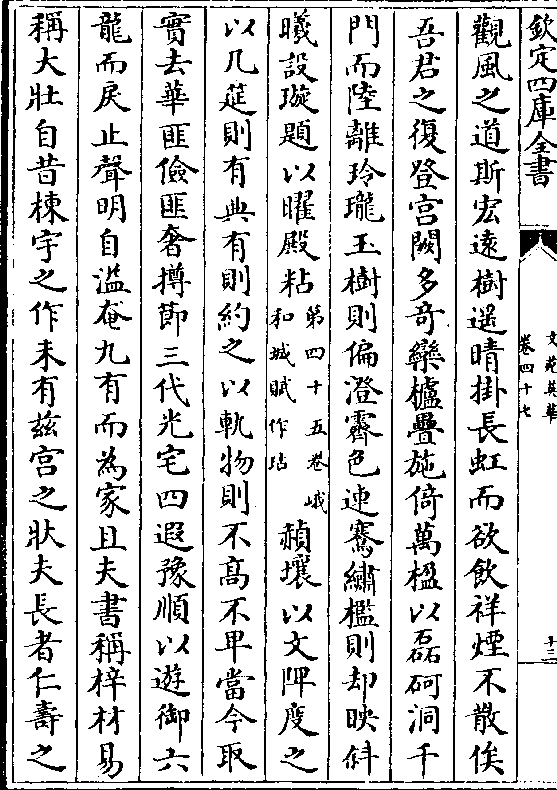 欽定四庫全書
文苑英華
卷四十七
十三
觀風之道斯宏遠樹遥晴掛長虹而欲飲祥煙不散俟
吾君之復登宫闕多竒欒櫨疊施倚萬楹以磊砢洞千
門而陸離玲瓏玉樹則偏澄霽色連騫繡檻則却映斜
曦設璇題以曜殿粘第四十五卷峨和城賦作玷赬壤以文陛度之
以几筵則有典有則約之以軌物則不髙不卑當今取
實去華匪儉匪奢撙節三代光宅四遐豫順以遊御六
龍而戾止聲明自溢奄九有而為家且夫書稱梓材易
稱大壯自昔棟宇之作未有兹宫之狀夫長者仁壽之